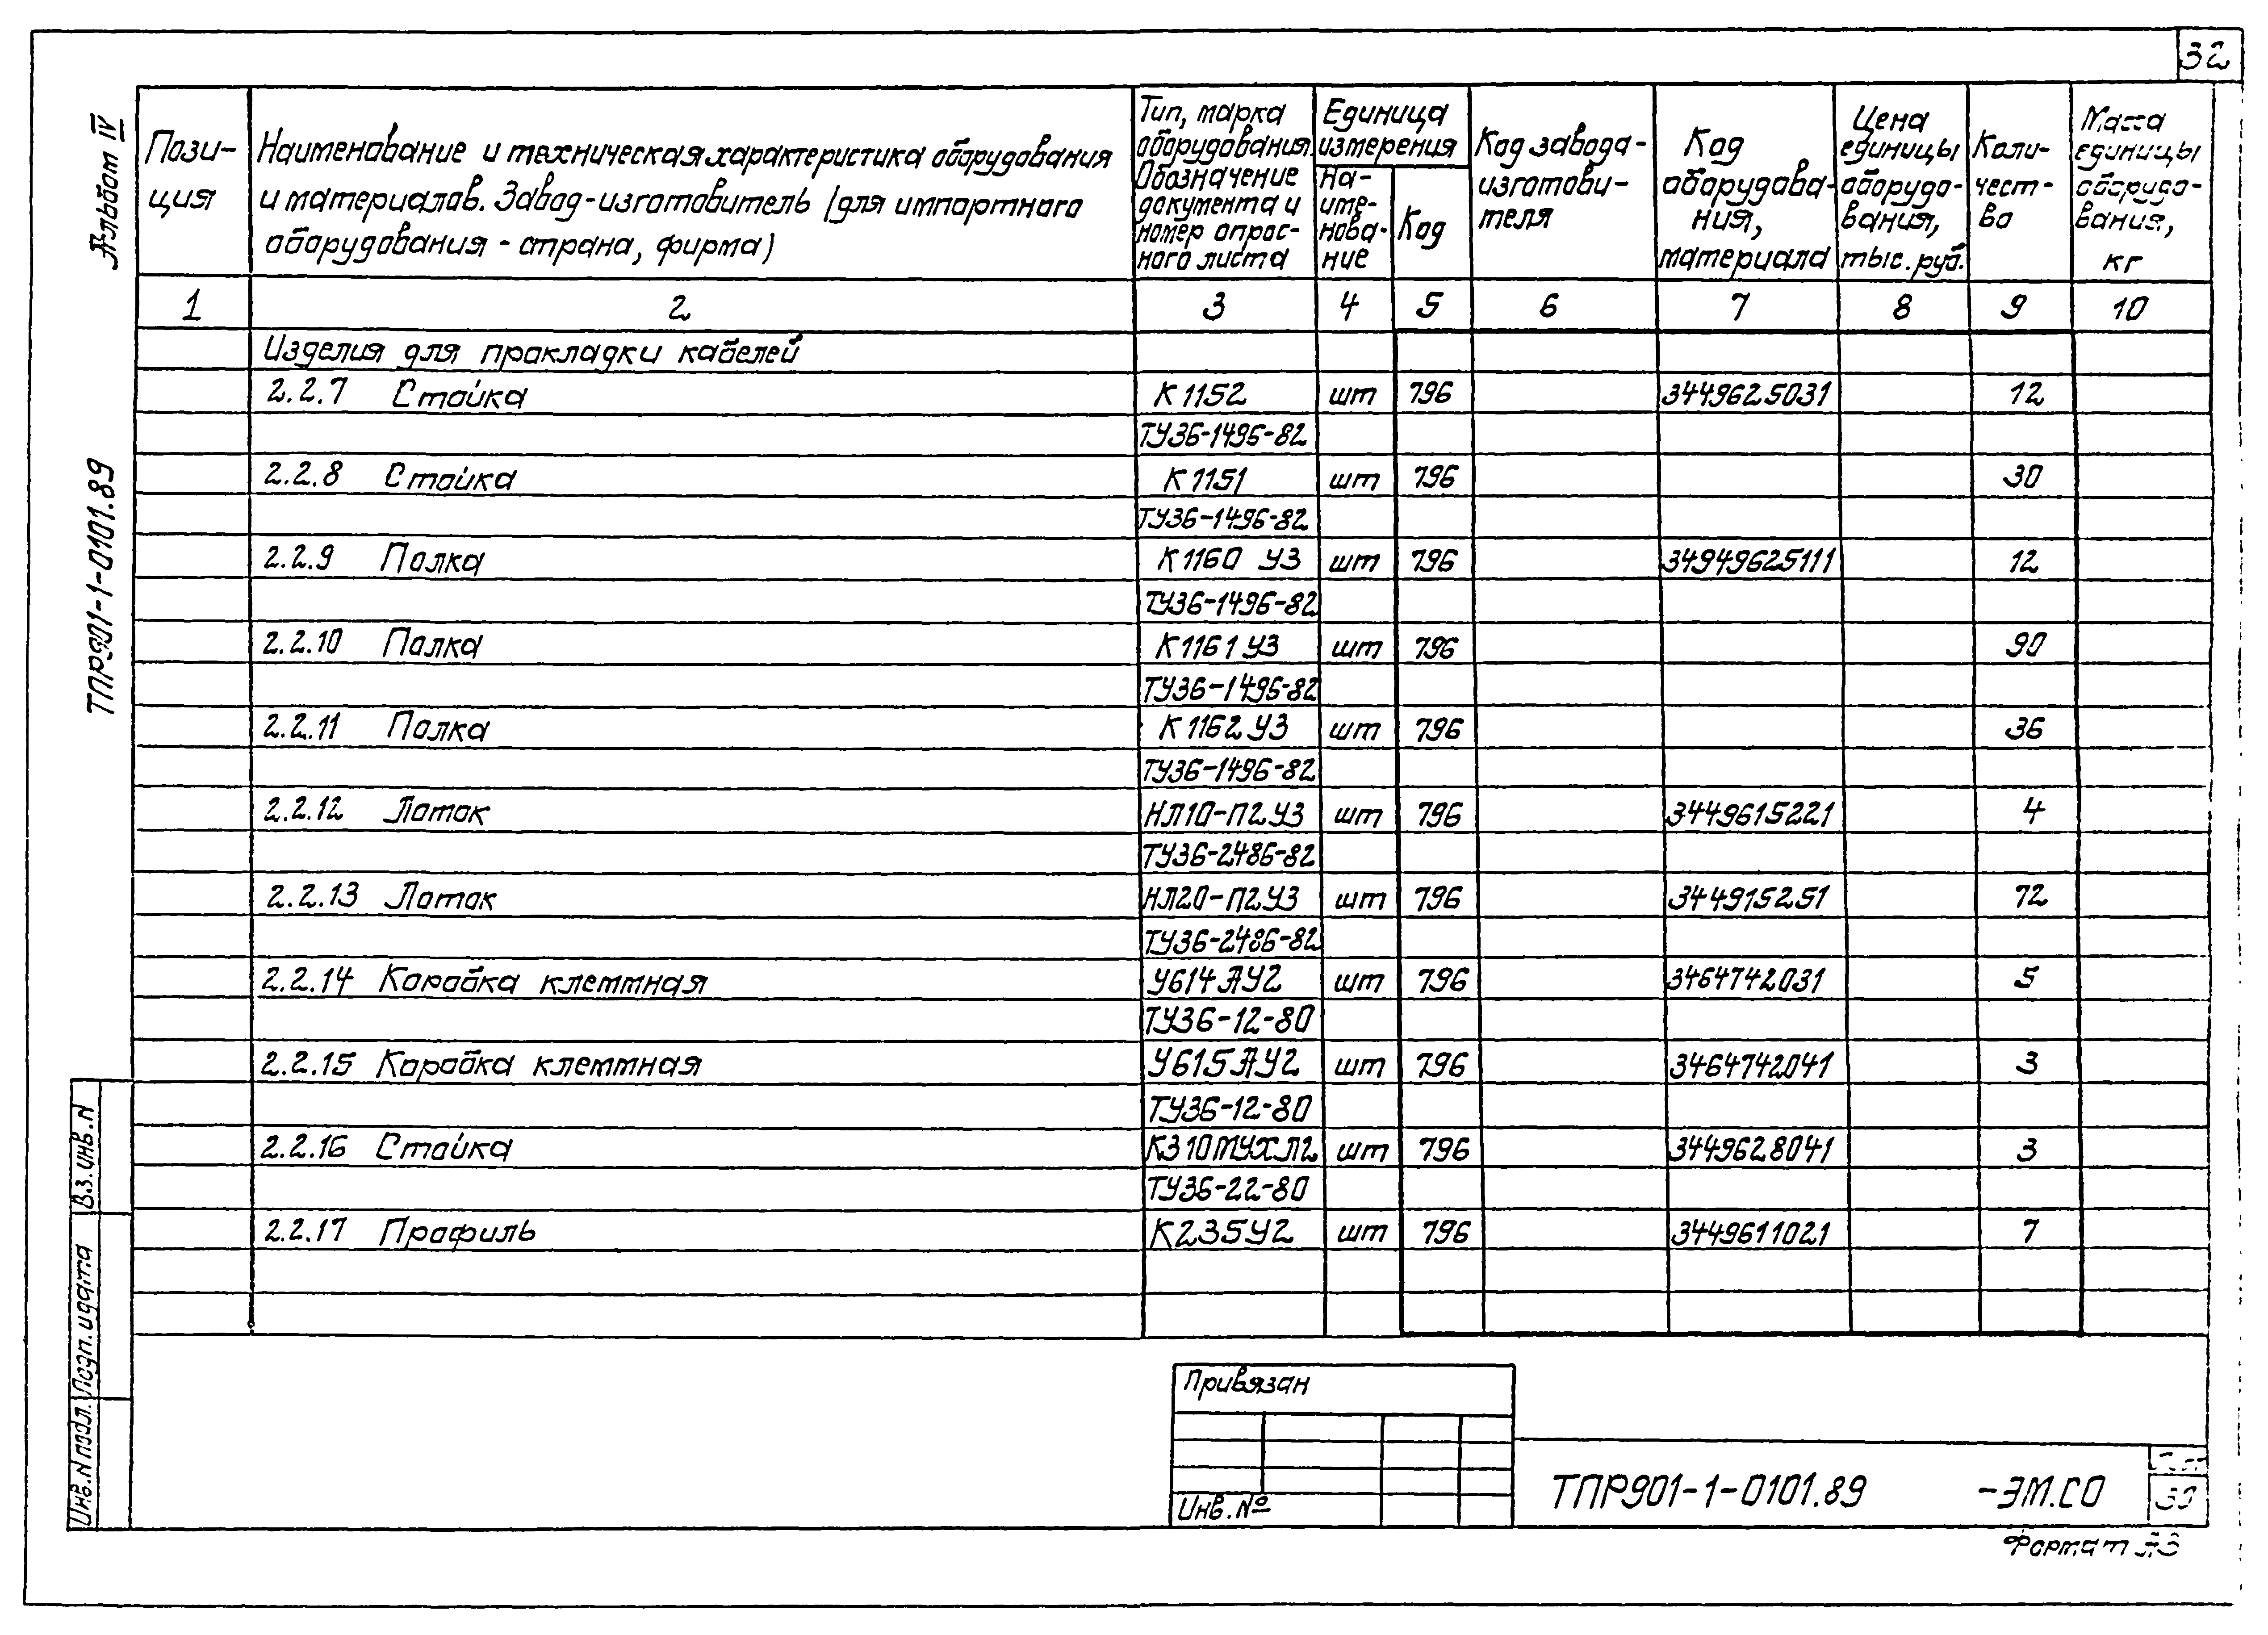 32
Альбом IV
ТПР901-1-0101.89
Пози-
ция
Наименование и техническая характеристика оборудования
и материалов. Завод-изготовитель (для импортного
оборудования - страна, фирма)
Тип, марка
оборудования.
Обозначение
документа и
номер опрос-
ного листа
Единица
измерения
На-
име-
нова-
ние
Код
Код завода-
изготови-
теля
Код
оборудова-
ния,
материала
Цена
единицы
оборудо-
вания,
тыс. руб.
Коли-
чест-
во
Масса
единицы
оборудо-
вания,
кг
1 2 3 4 5 6 7 8 9 10
Изделия для прокладки кабелей
2.2.7 Стойка К1152 шт 796 3449625031 12
ТУ36-1496-82
2.2.8 Стойка К1151 шт 796 30
ТУ36-1496-82
2.2.9 Полка К1160 У3 шт 796 34949625111 12
ТУ36-1496-82
2.2.10 Полка К1161У3 шт 796 90
ТУ36-1496-82
2.2.11 Полка К1162У3 шт 796 36
ТУ36-1496-82
2.2.12 Лоток НЛ10-П2У3 шт 796 3449615221 4
ТУ36-2486-82
2.2.13 Лоток НЛ20-П2У3 шт 796 344915251 72
ТУ36-2486-82
2.2.14 Коробка клеммная У614АУ2 шт 796 3464742031 5
ТУ36-12-80
2.2.15 Коробка клеммная У615АУ2 шт 796 3464742041 3
ТУ36-12-80
2.2.16 Стойка К310МУХЛ2 шт 796 3449628041 3
ТУ36-22-80
2.2.17 Профиль К235У2 шт 796 3449611021 7
Вз.инв.N
Подп. и дата
Инв.N подл.
Привязан
Инв.№
ТПР901-1-0101.89 -ЭМ.СО
Лист
30
Формат А3